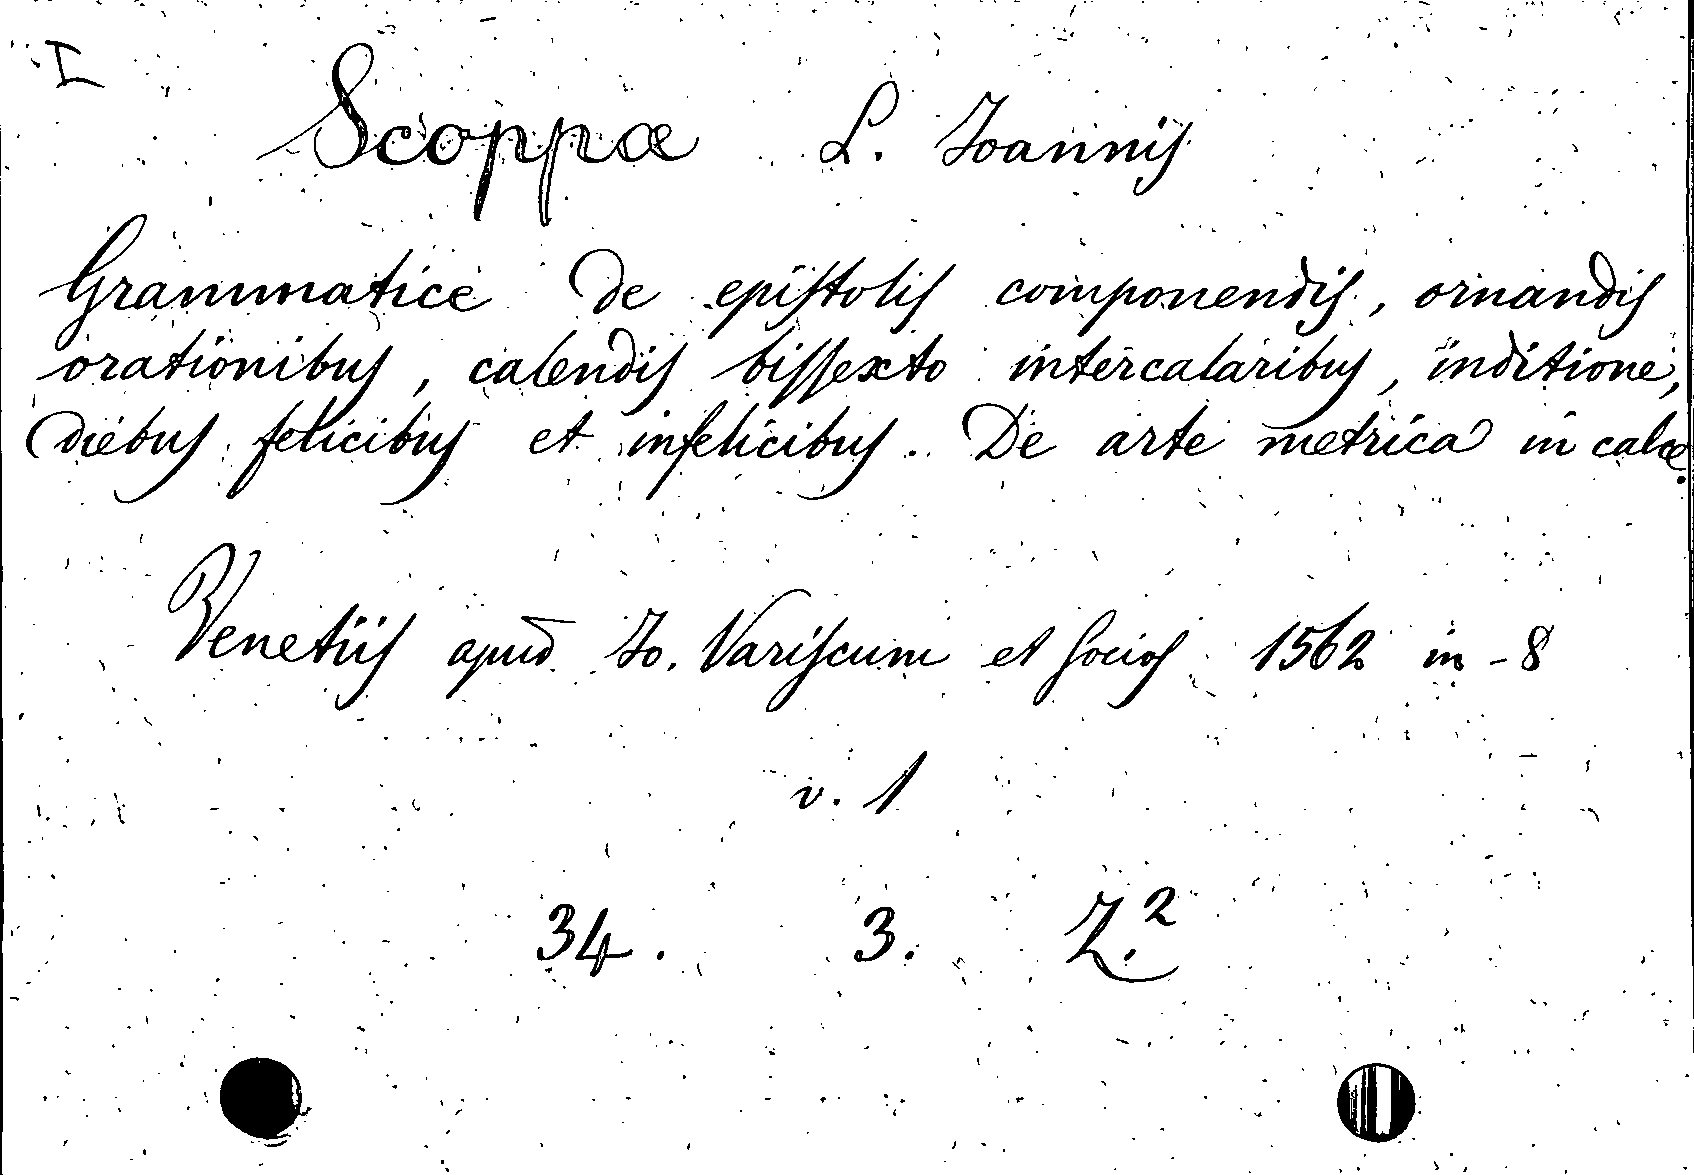 I
Scoppæ L. Joannis
Grammatice De epistolis componendis, ornandis
orationibus, calendis bissexto intercalaribus, inditione,
diebus felicibus et infelicibus. De arte metrica in calce.
Venetiis apud Jo. Variscum et Socios 1562 in-8
v. 1
34. 3. Z.2